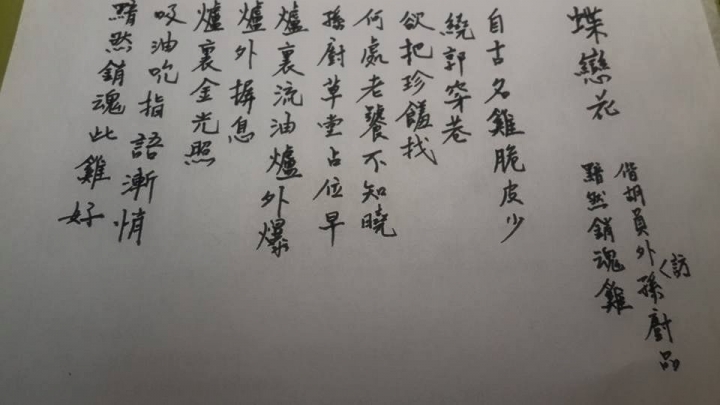 蝶戀花
偕胡員外訪孫廚品
黯然銷魂雞
自古名雞脆皮少
繞郭穿巷
欲把珍饈找
何處老饕不知曉
孫廚草堂占位早
爐裏流油爐外爆
爐外摒息
爐裏金光照
吸油吮指語漸悄
黯然銷魂此雞好